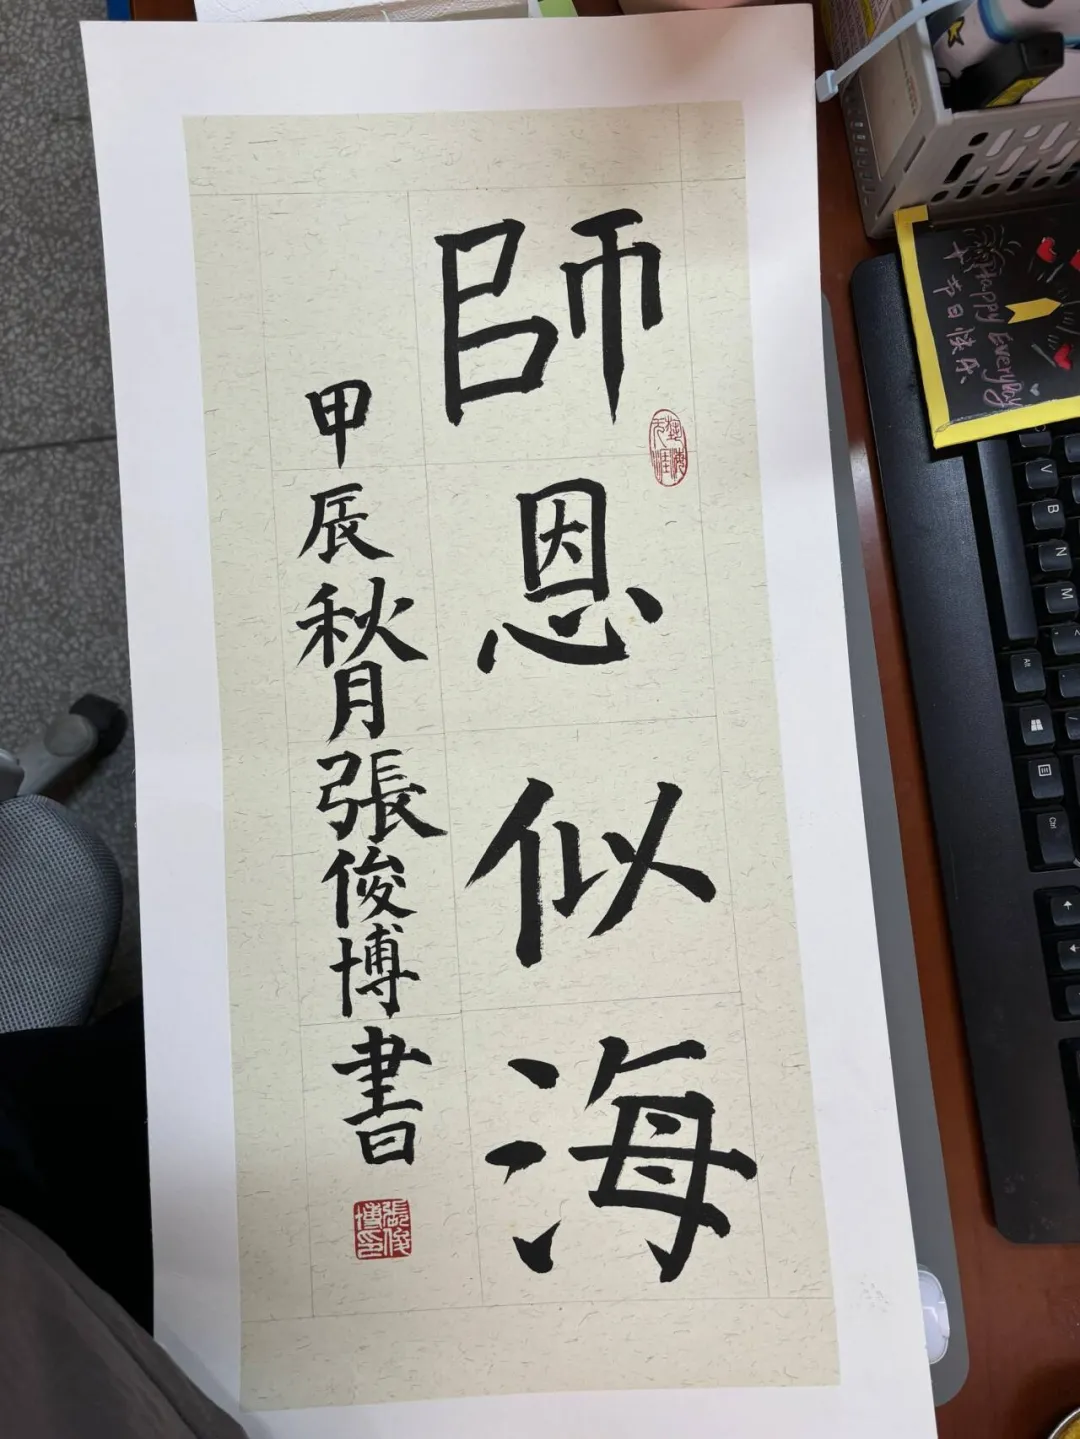 師恩似海
甲辰秋月張俊博書
張俊博印
Happy Everyday
节日快乐
V
B
N
M
Alt
Ctrl